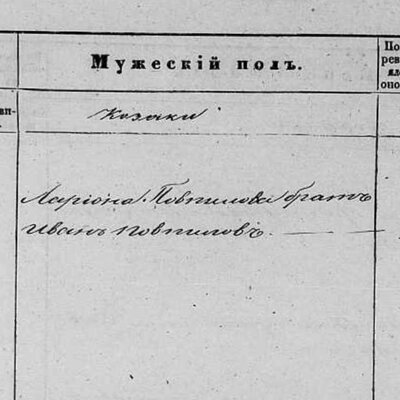 Мужескій полъ.
По
рев
яв
оно
вп-
Козаки
Ларіона Повпилова братъ
Иванъ Повпиловъ.